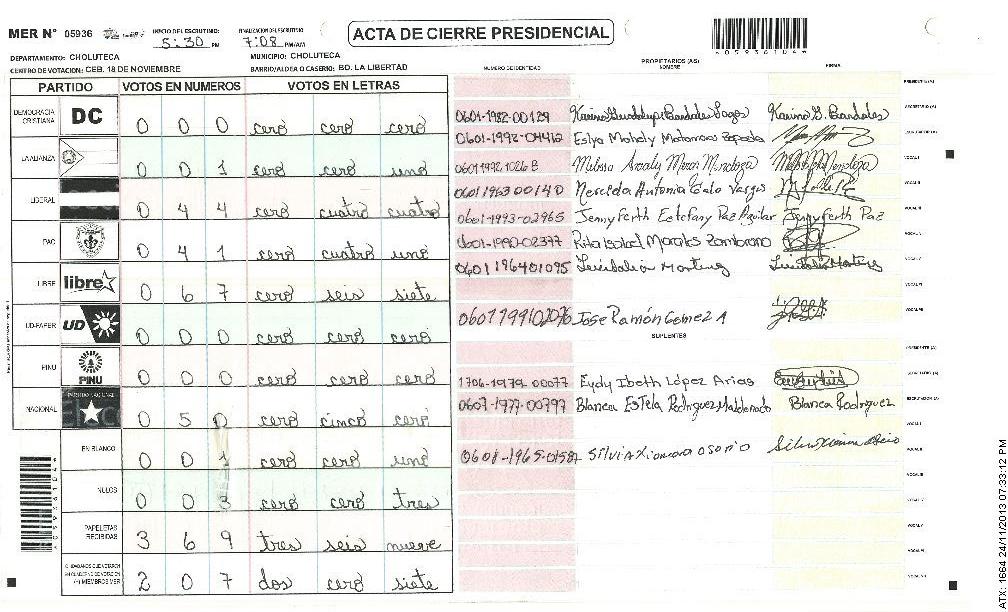 MER N° 05936
INICIO DEL ESCRUTINIO: 5:30 PM
FINALIZACION DEL ESCRUTINIO: 7:08 PM/AM
ACTA DE CIERRE PRESIDENCIAL
*05936104*
DEPARTAMENTO: CHOLUTECA
MUNICIPIO: CHOLUTECA
CENTRO DE VOTACION: CEB. 18 DE NOVIEMBRE
BARRIO/ALDEA O CASERIO: BO. LA LIBERTAD
NUMERO DE IDENTIDAD
PROPIETARIOS (AS)
NOMBRE
FIRMA
PARTIDO VOTOS EN NUMEROS VOTOS EN LETRAS
DEMOCRACIA CRISTIANA DC 0 0 0 cero cero cero
LA ALIANZA 0 0 1 cero cero uno
LIBERAL 0 4 4 cero cuatro cuatro
PAC 0 4 1 cero cuatro uno
LIBRE libre 0 6 7 cero seis siete
UD-FAPER UD 0 0 0 cero cero cero
PINU PINU 0 0 0 cero cero cero
NACIONAL 0 5 0 cero cinco cero
EN BLANCO 0 0 1 cero cero uno
NULOS 0 0 3 cero cero tres
PAPELETAS RECIBIDAS 3 6 9 tres seis nueve
CIUDADANOS QUE VOTARON EN CUADERNO DE VOTACION (+) MIEMBROS MER 2 0 7 dos cero siete
0601-1982-00129 Karina Guadalupe Bardales Karina G. Bardales
0601-1992-04412 Matamoros Zepeda
0601 1992 1026 8 Melissa Mendoza
0601 1963 00140 Mercida Antonia Galo Vargas
0601-1993-02965 Jenny Ferth Estefany Paz Aguilar Jenny Ferth Paz
0601-1990-02377 Rita Isabel Morales Zambrano
0601 1964 01095
0601 1991 02076 Jose Ramón Gomez A
SUPLENTES
1706-1979-00077 Eydy Ibeth López Arias
0607-1977-00797 Blanca Estela Rodriguez Maldonado Blanca Rodriguez
0601-1965-01587 Silvia Xiomara Osorio
ATX: 1664 24/11/2013 07:33:12 PM